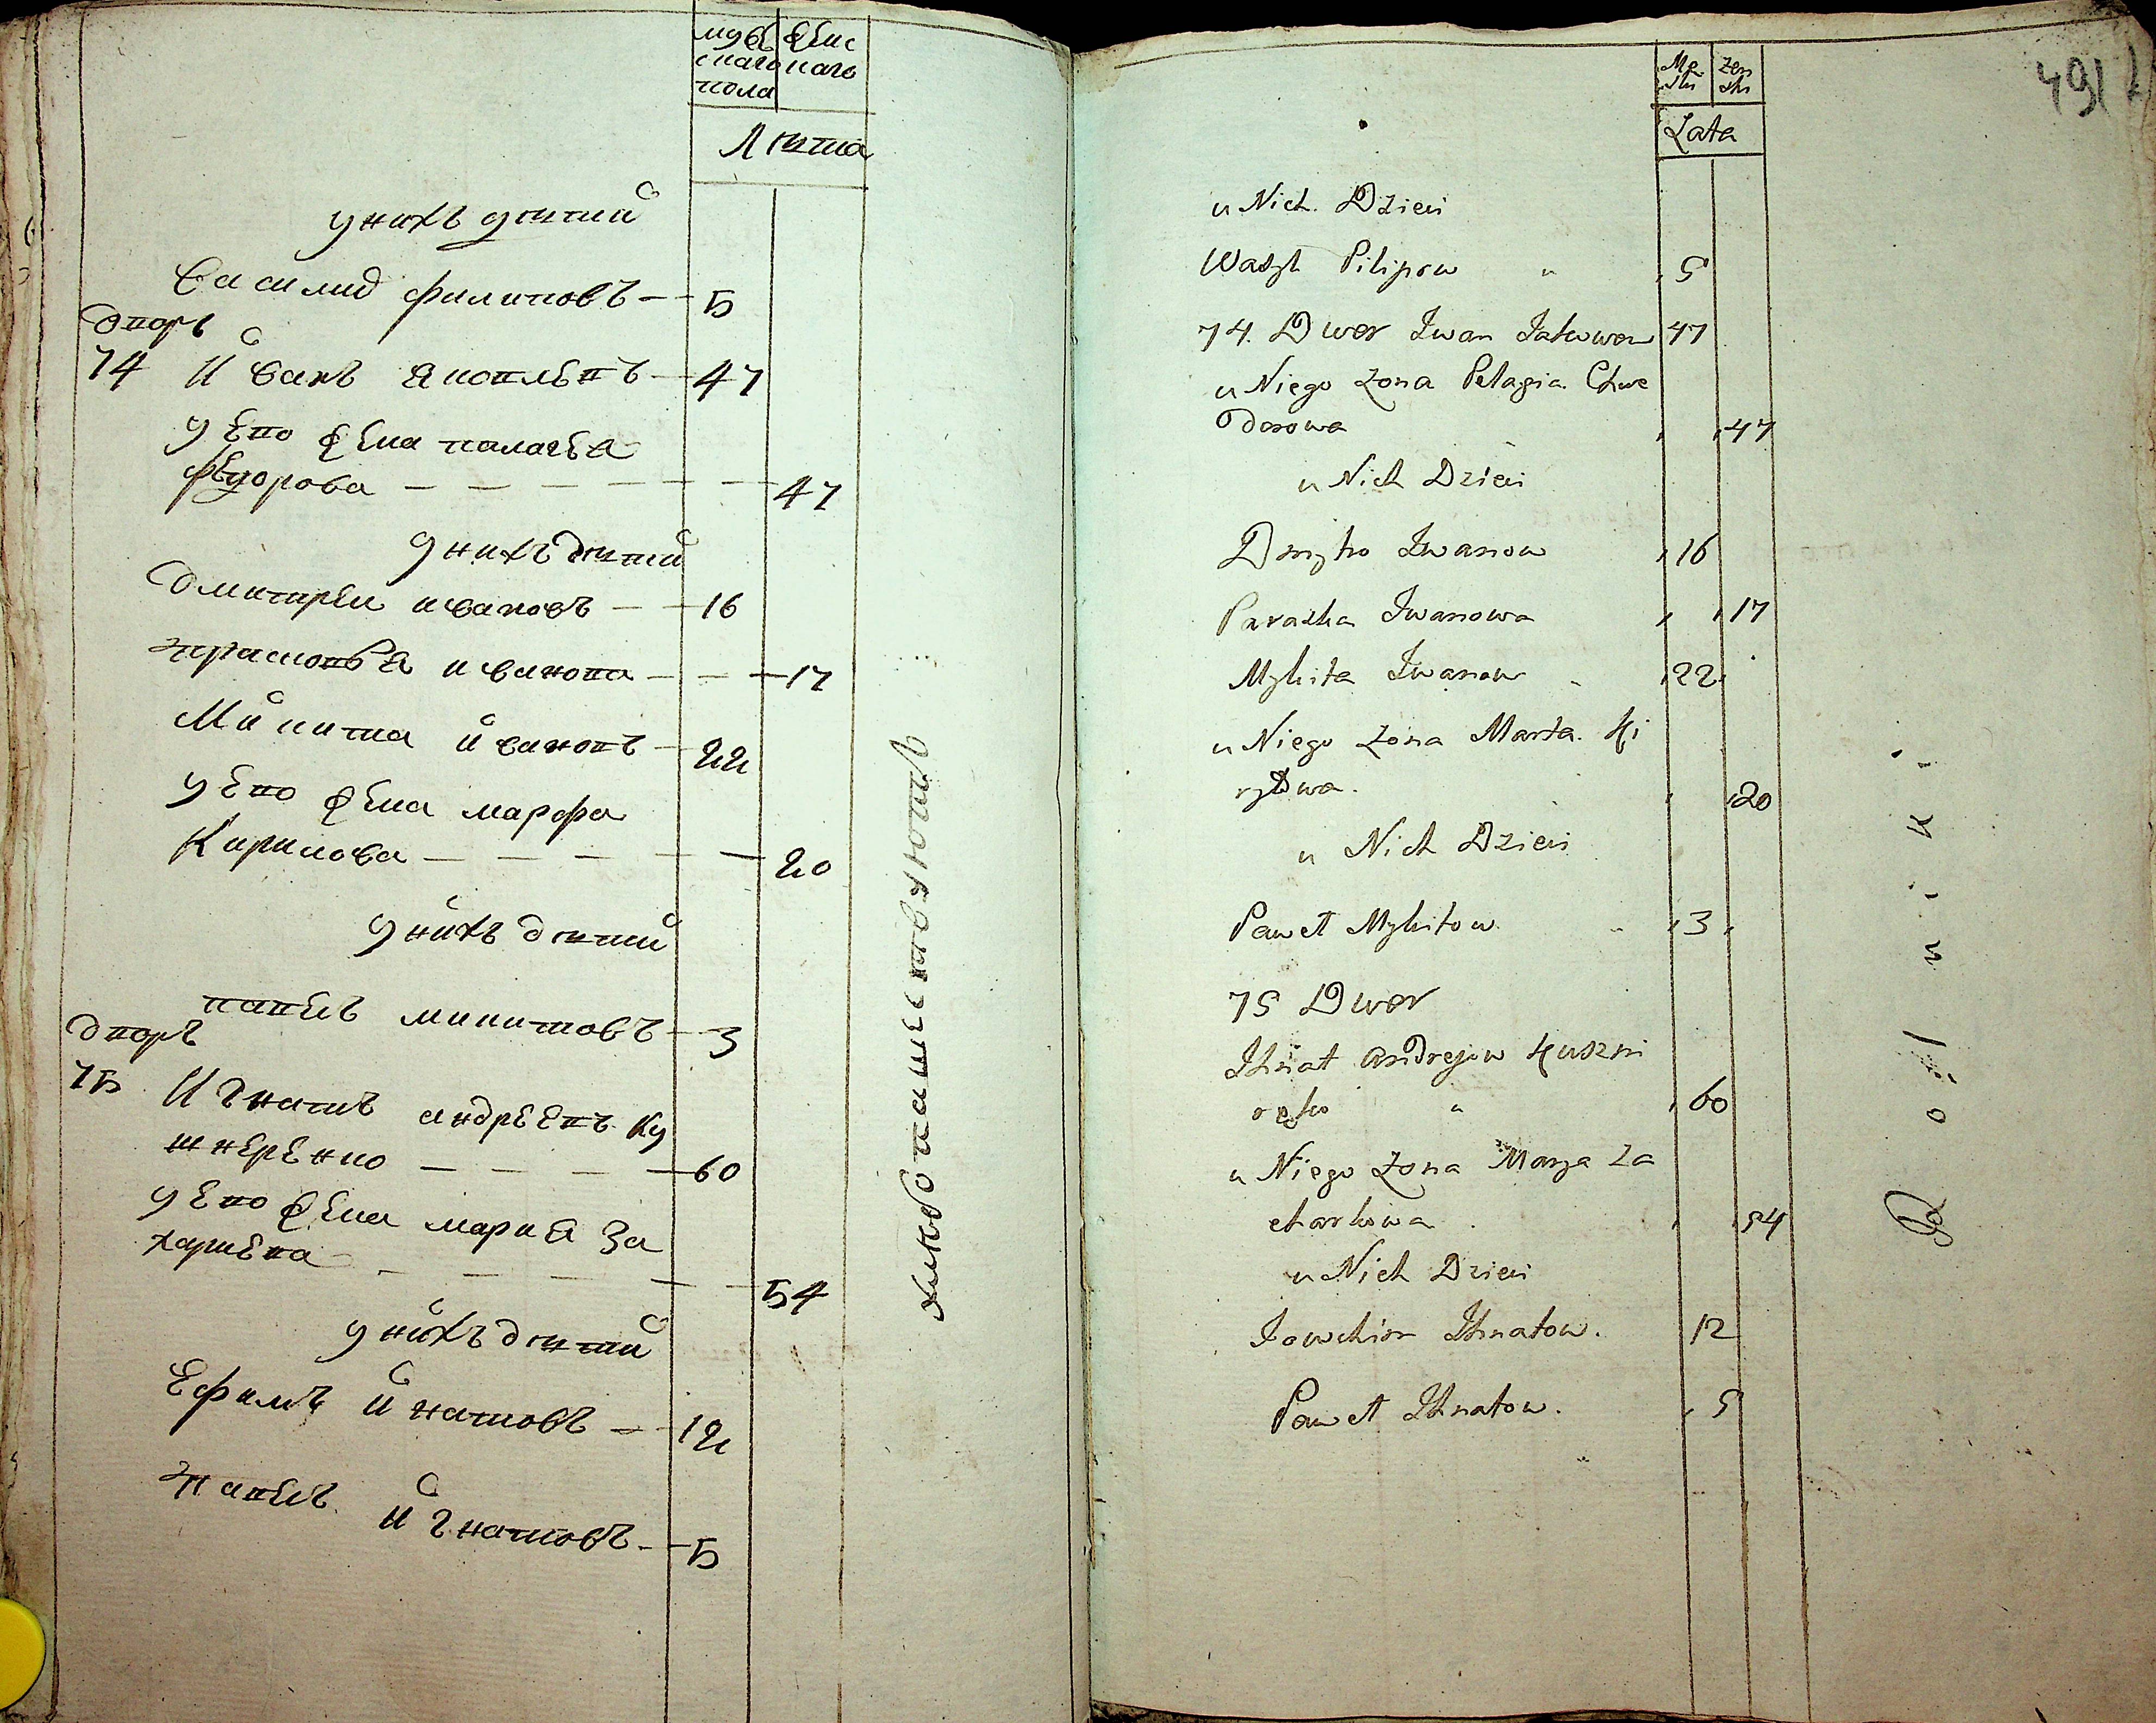 мужескаго пола
женскаго
Лѣта
у нихъ дѣтей
Василий филиповъ 5
дворъ
74 Иванъ Яковлевъ 47
у ево жена палагея
федорова 47
у нихъ дѣтей
дмитрей ивановъ 16
прасковья иванова 17
Микита ивановъ 22
у ево жена марфа
Кирилова 20
у нихъ дѣтей
павелъ микитовъ 3
дворъ
75 Игнатъ андреевъ Ку
шнеренко 60
у ево жена мария За
харьева 54
у нихъ дѣтей
Ефимъ игнатовъ 12
павелъ игнатовъ 5
хлебопашествуютъ
491
Męski
żenski
Lata
u Nich Dzieci
Wasyl Pilipow 5
74. Dwor Iwan Jakuwow 47
u Niego żona Pelagia Chwe
dorowa 47
u Nich Dzieci
Dmytro Iwanow 16
Paraska Iwanowa 17
Mykita Iwanow 22
u Niego żona Marta Ki
ryłowa. 20
u Nich Dzieci
Paweł Mykitow 3
75 Dwor
Ihnat Andrejow Kuszni
ręko 60
u Niego żona Marya Za
charkowa 54
u Nich Dzieci
Jowchim Ihnatow. 12
Paweł Ihnatow. 5
Rolniki